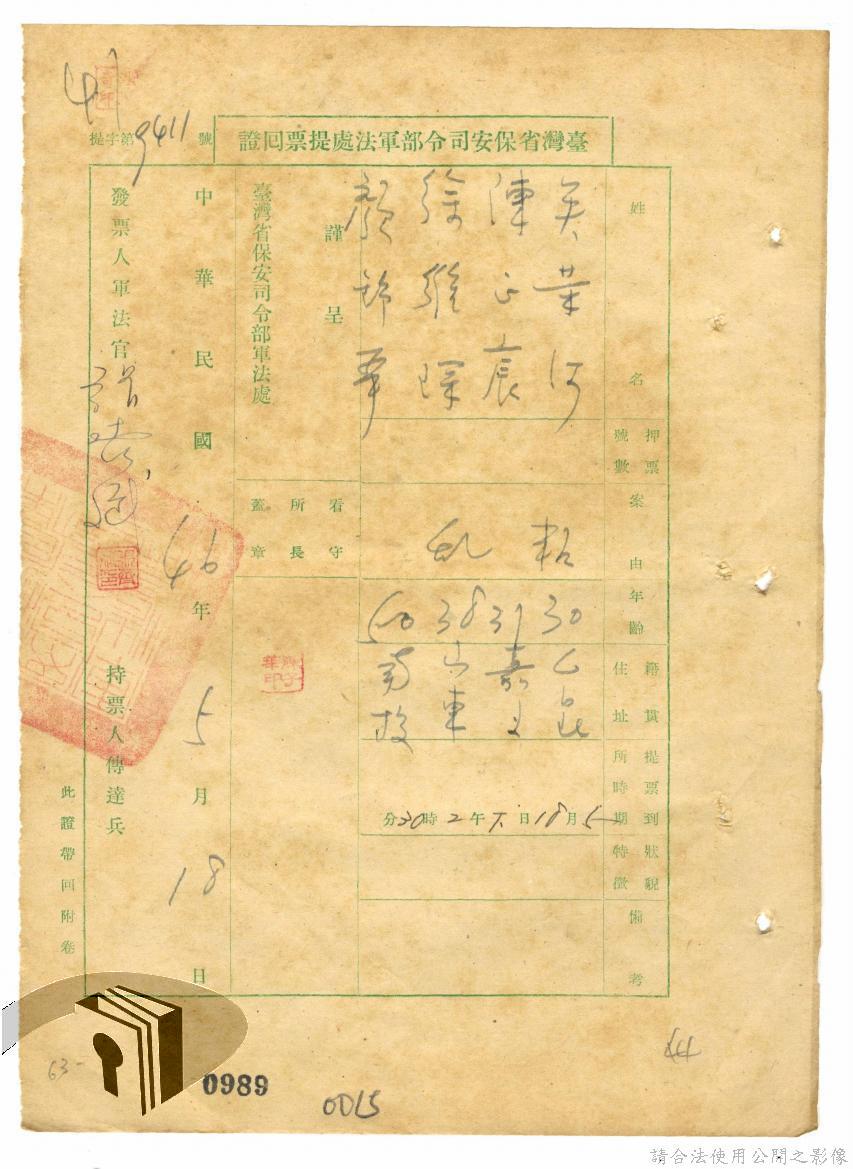 臺灣省保安司令部軍法處提票回證
提字第9411號
姓名
吳榮河
陳正宸
徐維琛
顏錦華
押票號數
案由
叛亂
年齡
30
31
38
50
籍貫住址
嘉義
山東
南投
提票到所時期
5月18日下午2時30分
狀貌特徵
備考
謹呈
臺灣省保安司令部軍法處
看守所長蓋章
中華民國46年5月18日
發票人軍法官
持票人傳達兵
此證帶回附卷
44
63-
0989
0015
請合法使用公開之影像